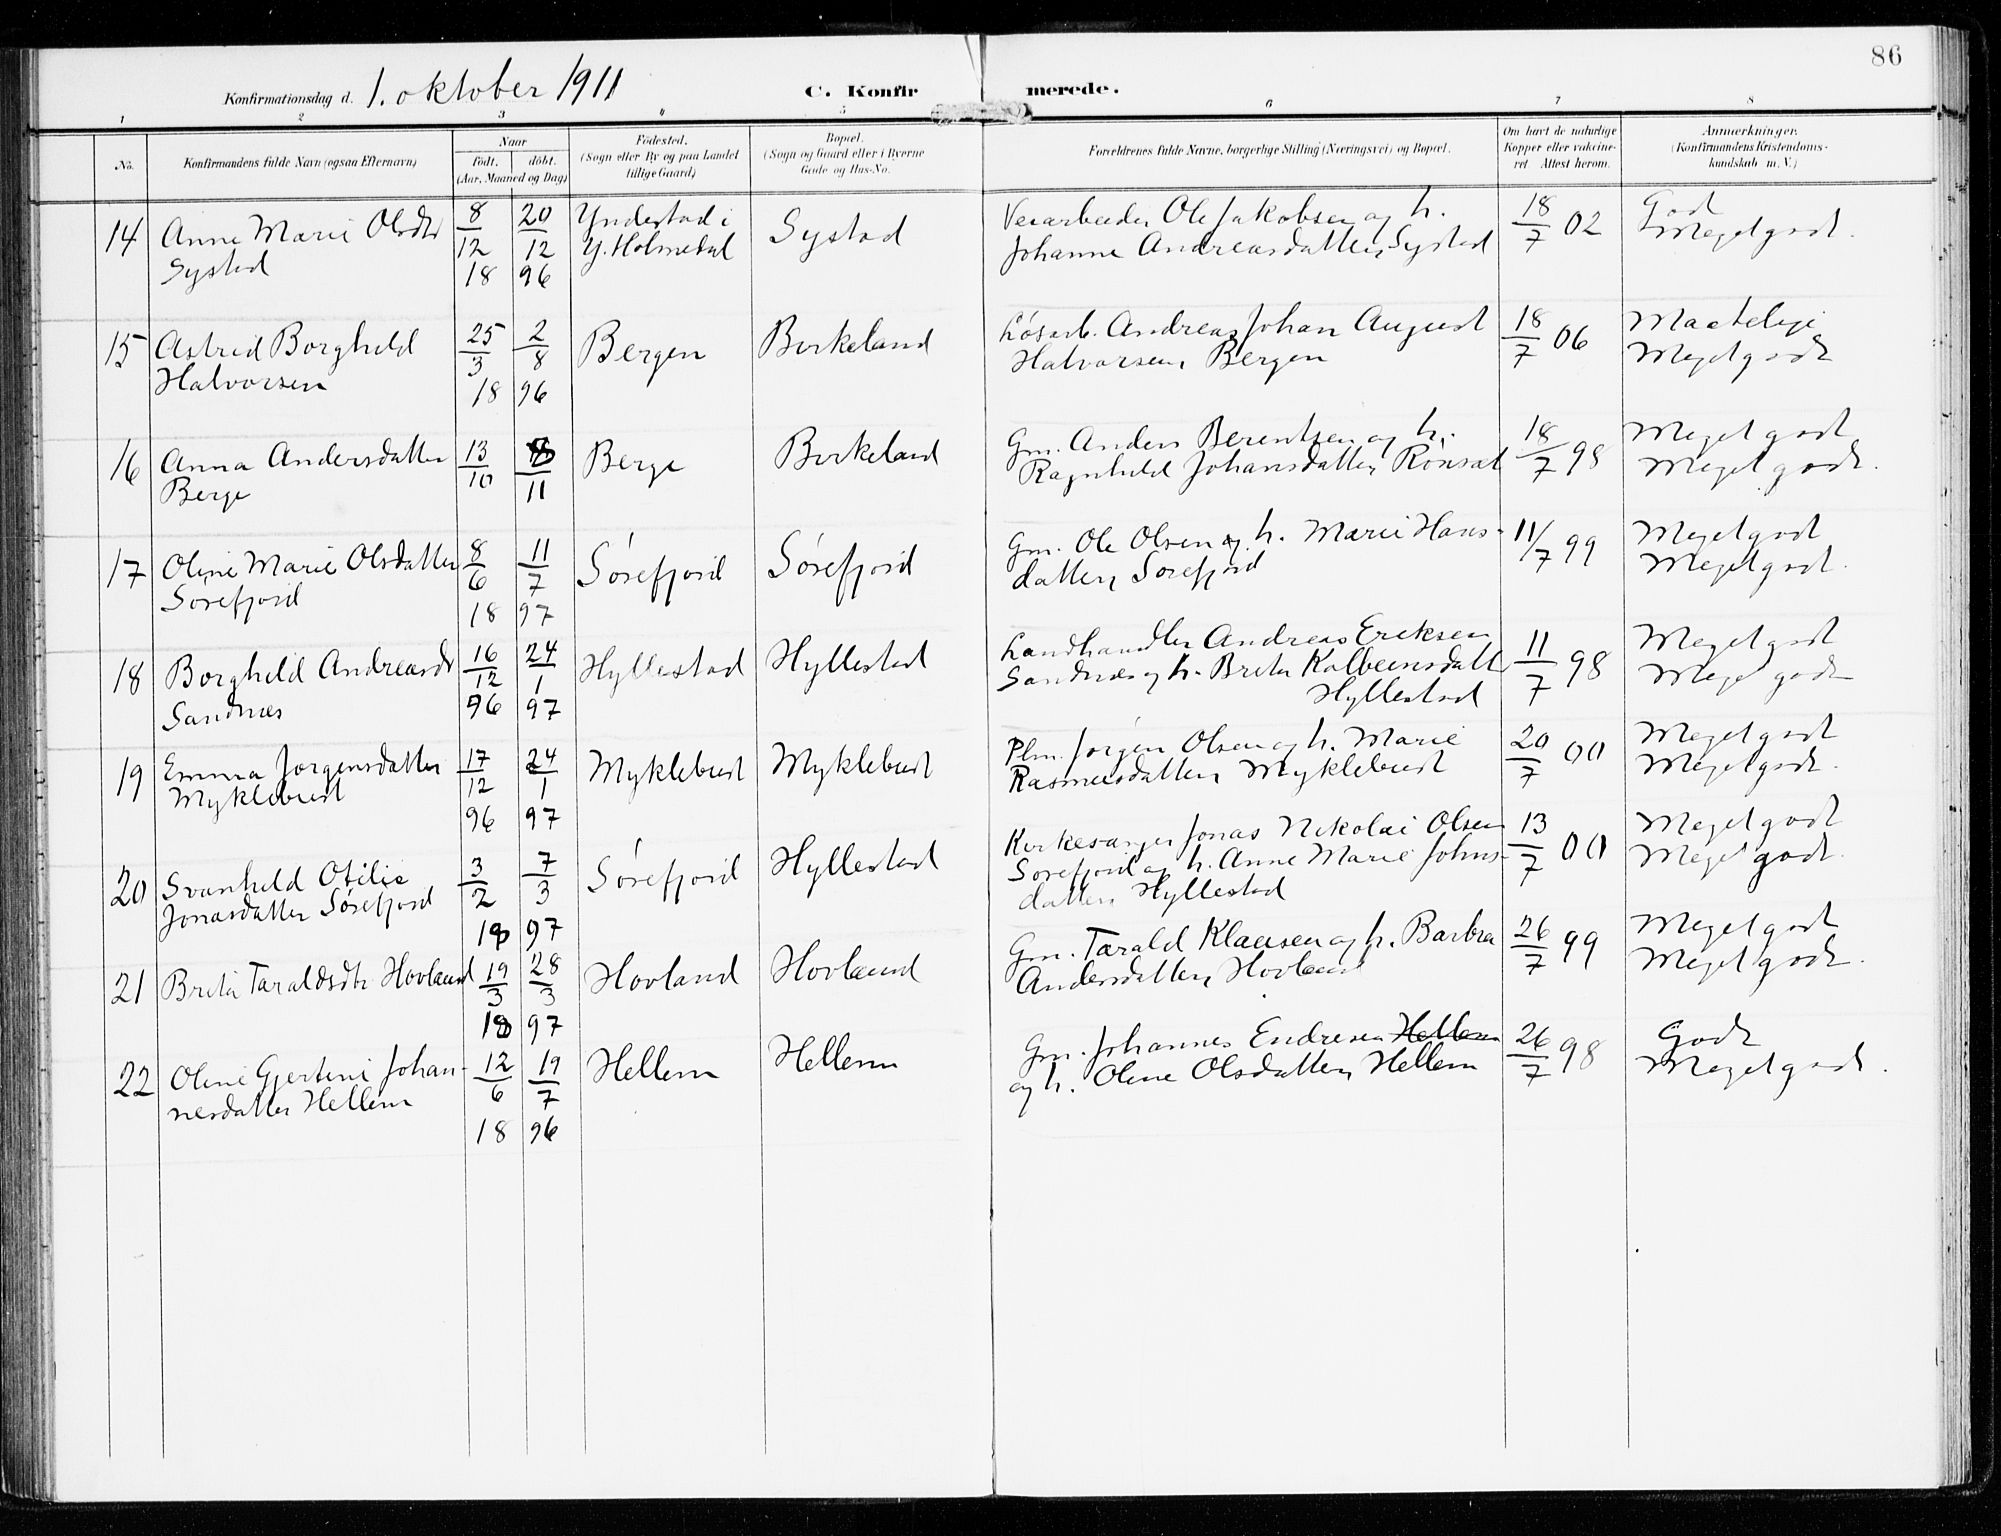 86
Konfirmationsdag d. 1. oktober 1911 C. Konfir merede.
1 2 3 4 5 6 7 8
No.
Konfirmandens fulde Navn (ogsaa Efternavn)
Naar
födt. döbt.
(Aar, Maaned og Dag)
Födested.
(Sogn eller By og paa Landet
tillige Gaard)
Bopæl.
(Sogn og Gaard eller i Byerne
Gade og Hus-No.
Forældrenes fulde Navne, borgerlige Stilling (Næringsvei) og Bopæl.
Om havt de naturlige
Kopper eller vakcine-
ret Attest herom.
Anmærkninger.
(Konfirmandens Kristendoms-
kundskab m. V.)
14 Anne Marie Olsdtr
Systad
8/12 20/12
18 96
Yndestad i
Y. Holmedal
Systad
Ole Jakobsen og h.
Johanne Andreasdatter, Systad
18/7 02
Godt
Meget godt.
15 Astrid Borghild
Halvorsen
25/3 2/8
18 96
Bergen
Birkeland
Løsarb. Andreas Johan August
Halvorsen, Bergen
18/7 06
Maadelig
Meget godt
16 Anna Andersdatter
Berge
13/10 8/11
Berge
Birkeland
Gm. Anders Berentsen og h.
Ragnhild Johansdatter, Rönset
18/7 98
Meget godt
Meget godt.
17 Oline Marie Olsdatter
Sørefjord
8/6 11/7
18 97
Sørefjord
Sørefjord
Gm. Ole Olsen og h. Marie Hans-
datter, Sørefjord
11/7 99
Meget godt
Meget godt.
18 Borghild Andreasdt
Sandnæs
16/12 24/1
96 97
Hyllestad
Hyllestad
Landhandler Andreas Eriksen
Sandnæs og h. Brita Kolbeinsdatt
Hyllestad
11/7 98
Meget godt
Meget godt
19 Emma Jorgensdatter
Myklebust
17/12 24/1
96 97
Myklebust
Myklebust
Plm. Jorgen Olsen og h. Marie
Rasmusdatter, Myklebust
20/7 00
Meget godt
Meget godt.
20 Svanhild Otilie
Jonasdatter Sørefjord
3/2 7/3
18 97
Sørefjord
Hyllestad
Kirkesanger Jonas Nikolai Olsen
Sørefjord og h. Anne Marie Johns-
datter, Hyllestad
13/7 00
Meget godt
Meget godt.
21 Brita Taraldsdtr Hovland
19/3 28/3
18 97
Hovland
Hovland
Gm. Tarald Klausen og h. Barbra
Andersdatter, Hovland
26/7 99
Meget godt
Meget godt.
22 Oline Gjertine Johan-
nesdatter Hellem
12/6 19/7
18 96
Hellem
Hellem
Gm. Johannes Endresen Hellem
og h. Oline Olsdatter, Hellem
26/7 98
Godt
Meget godt.